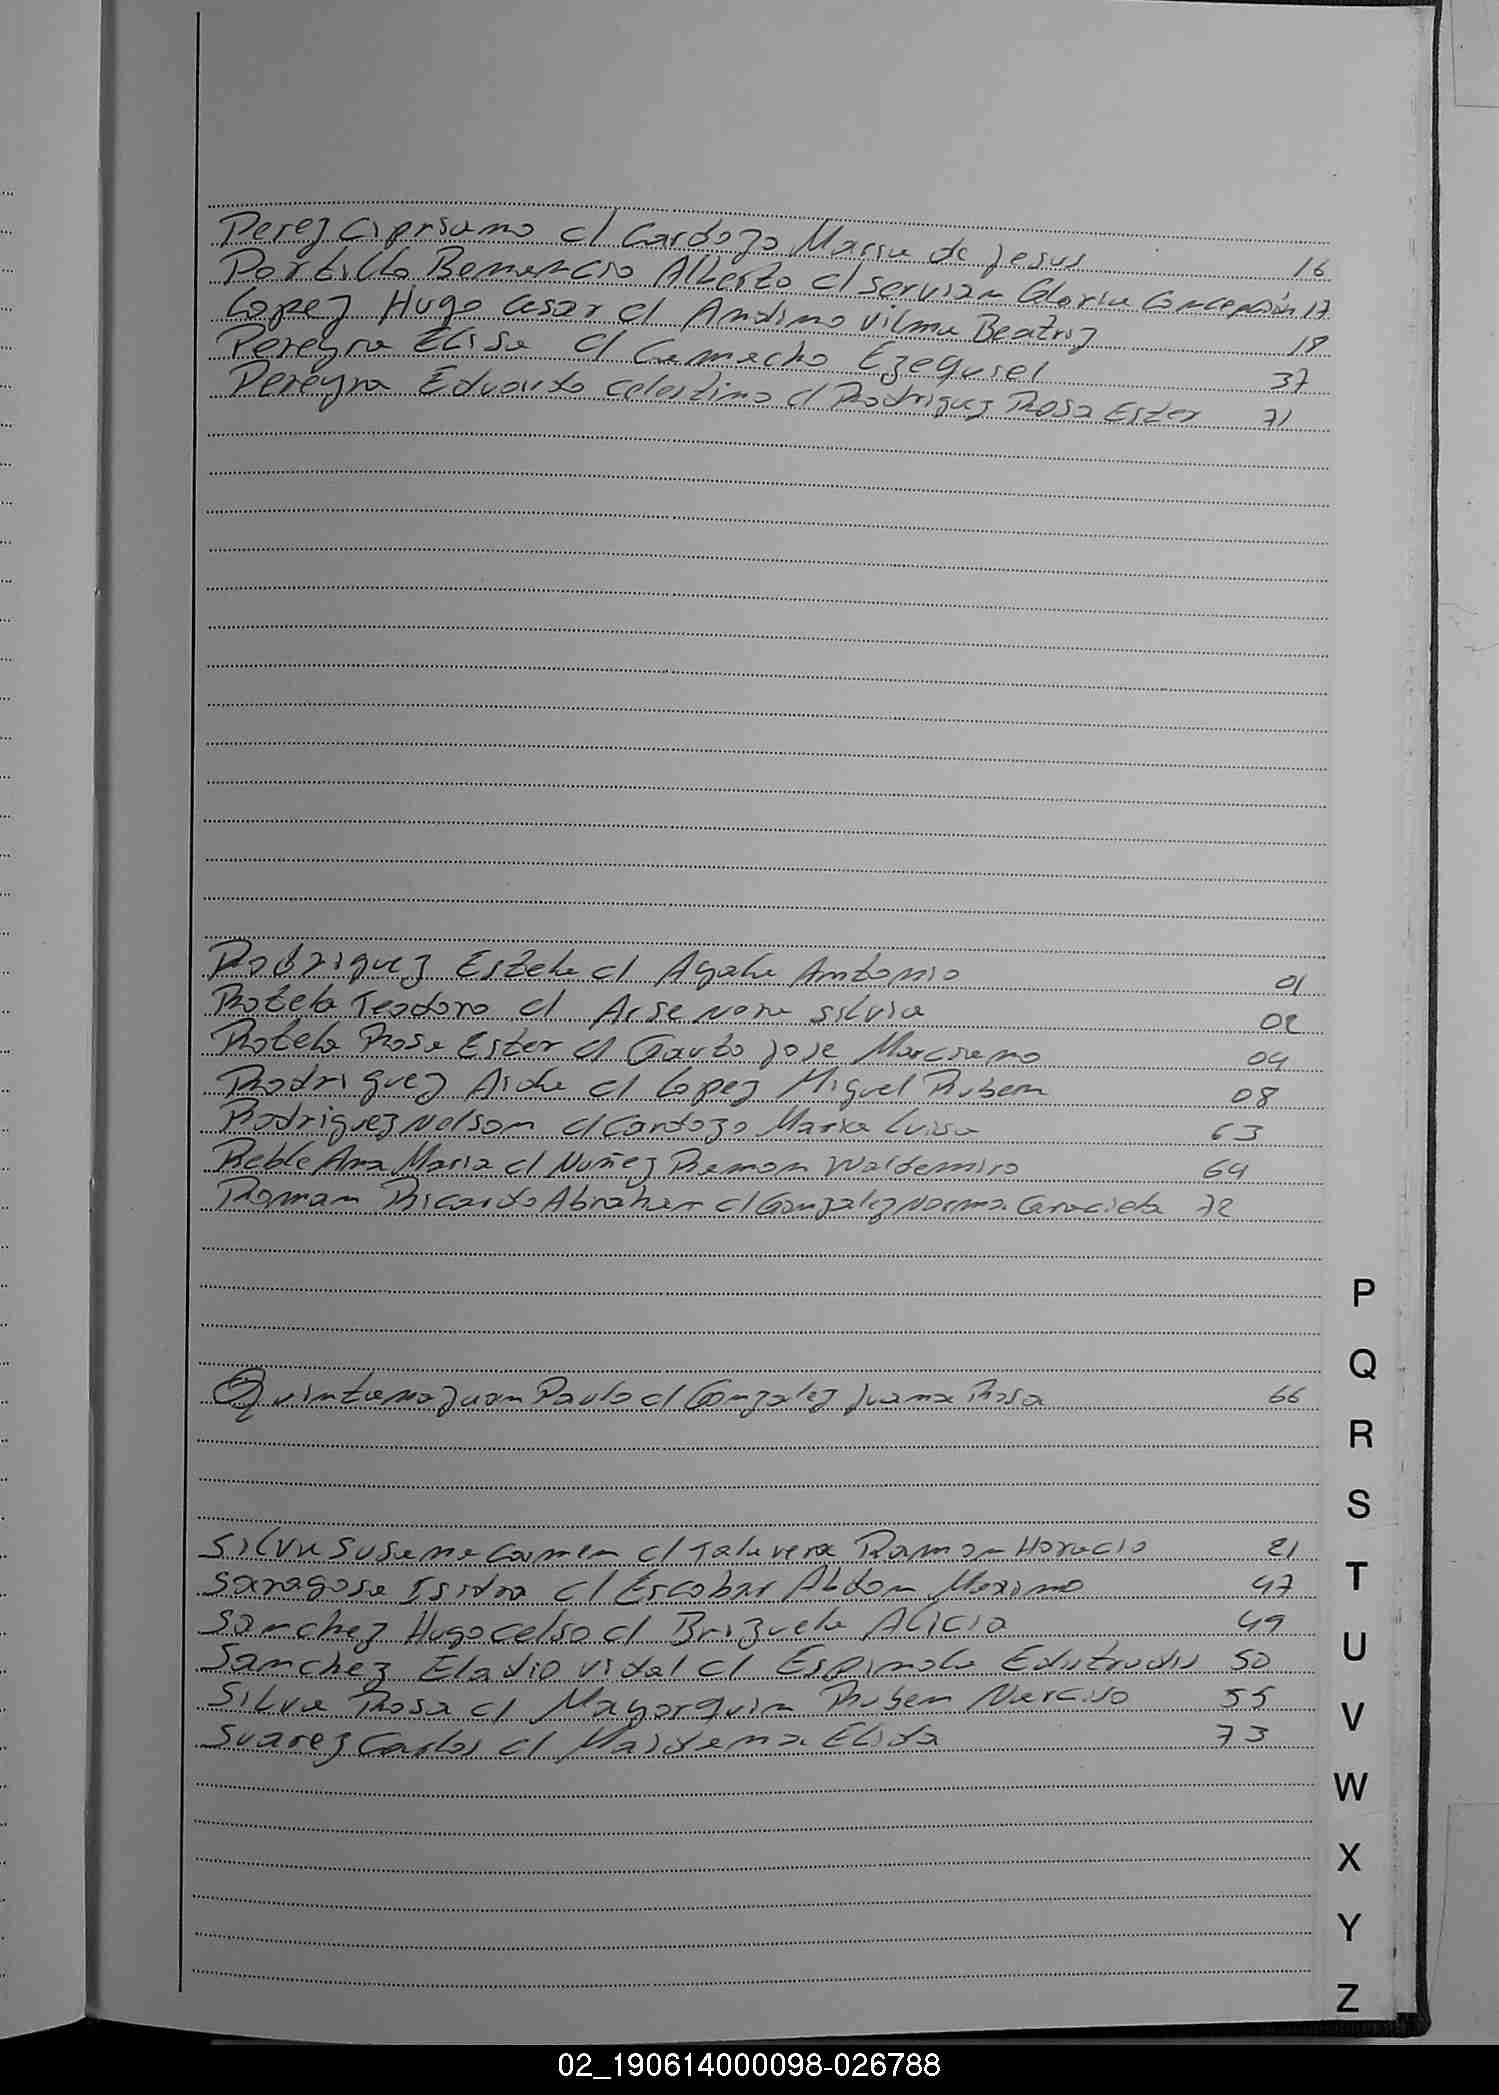 Perez Cipriano c/ Cardozo Maria de Jesus 16
Portillo Benancio Alberto c/ Servian Gloria Concepción 17
Lopez Hugo Cesar c/ Andino Vilma Beatriz 18
Pereyra Elisa c/ Camacho Ezequiel 37
Pereyra Eduardo Celestino c/ Rodriguez Rosa Ester 71
Rodriguez Estela c/ Ayala Antonio 01
Rotela Teodoro c/ Arse Nora Silvia 02
Rotela Rosa Ester c/ Gauto Jose Marciano 04
Rodriguez Aida c/ Lopez Miguel Ruben 08
Rodriguez Nelson c/ Cardozo Maria Luisa 63
Reble Ana Maria c/ Nuñez Ramon Waldemiro 64
Roman Ricardo Abraham c/ Gonzalez Norma Graciela 72
P
Q
Quintana Juan Paulo c/ Gonzalez Juana Rosa 66
R
S
Silva Susana Carmen c/ Talavera Ramon Horacio 21
T
Saragosa Isidra c/ Escobar Abdon Maximo 47
Sanchez Hugo Celso c/ Brizuela Alicia 49
U
Sanchez Eladio Vidal c/ Espinola Edutrudis 50
Silva Rosa c/ Mayorquin Ruben Narciso 55
V
Suarez Carlos c/ Maidana Elida 73
W
X
Y
Z
02_190614000098-026788